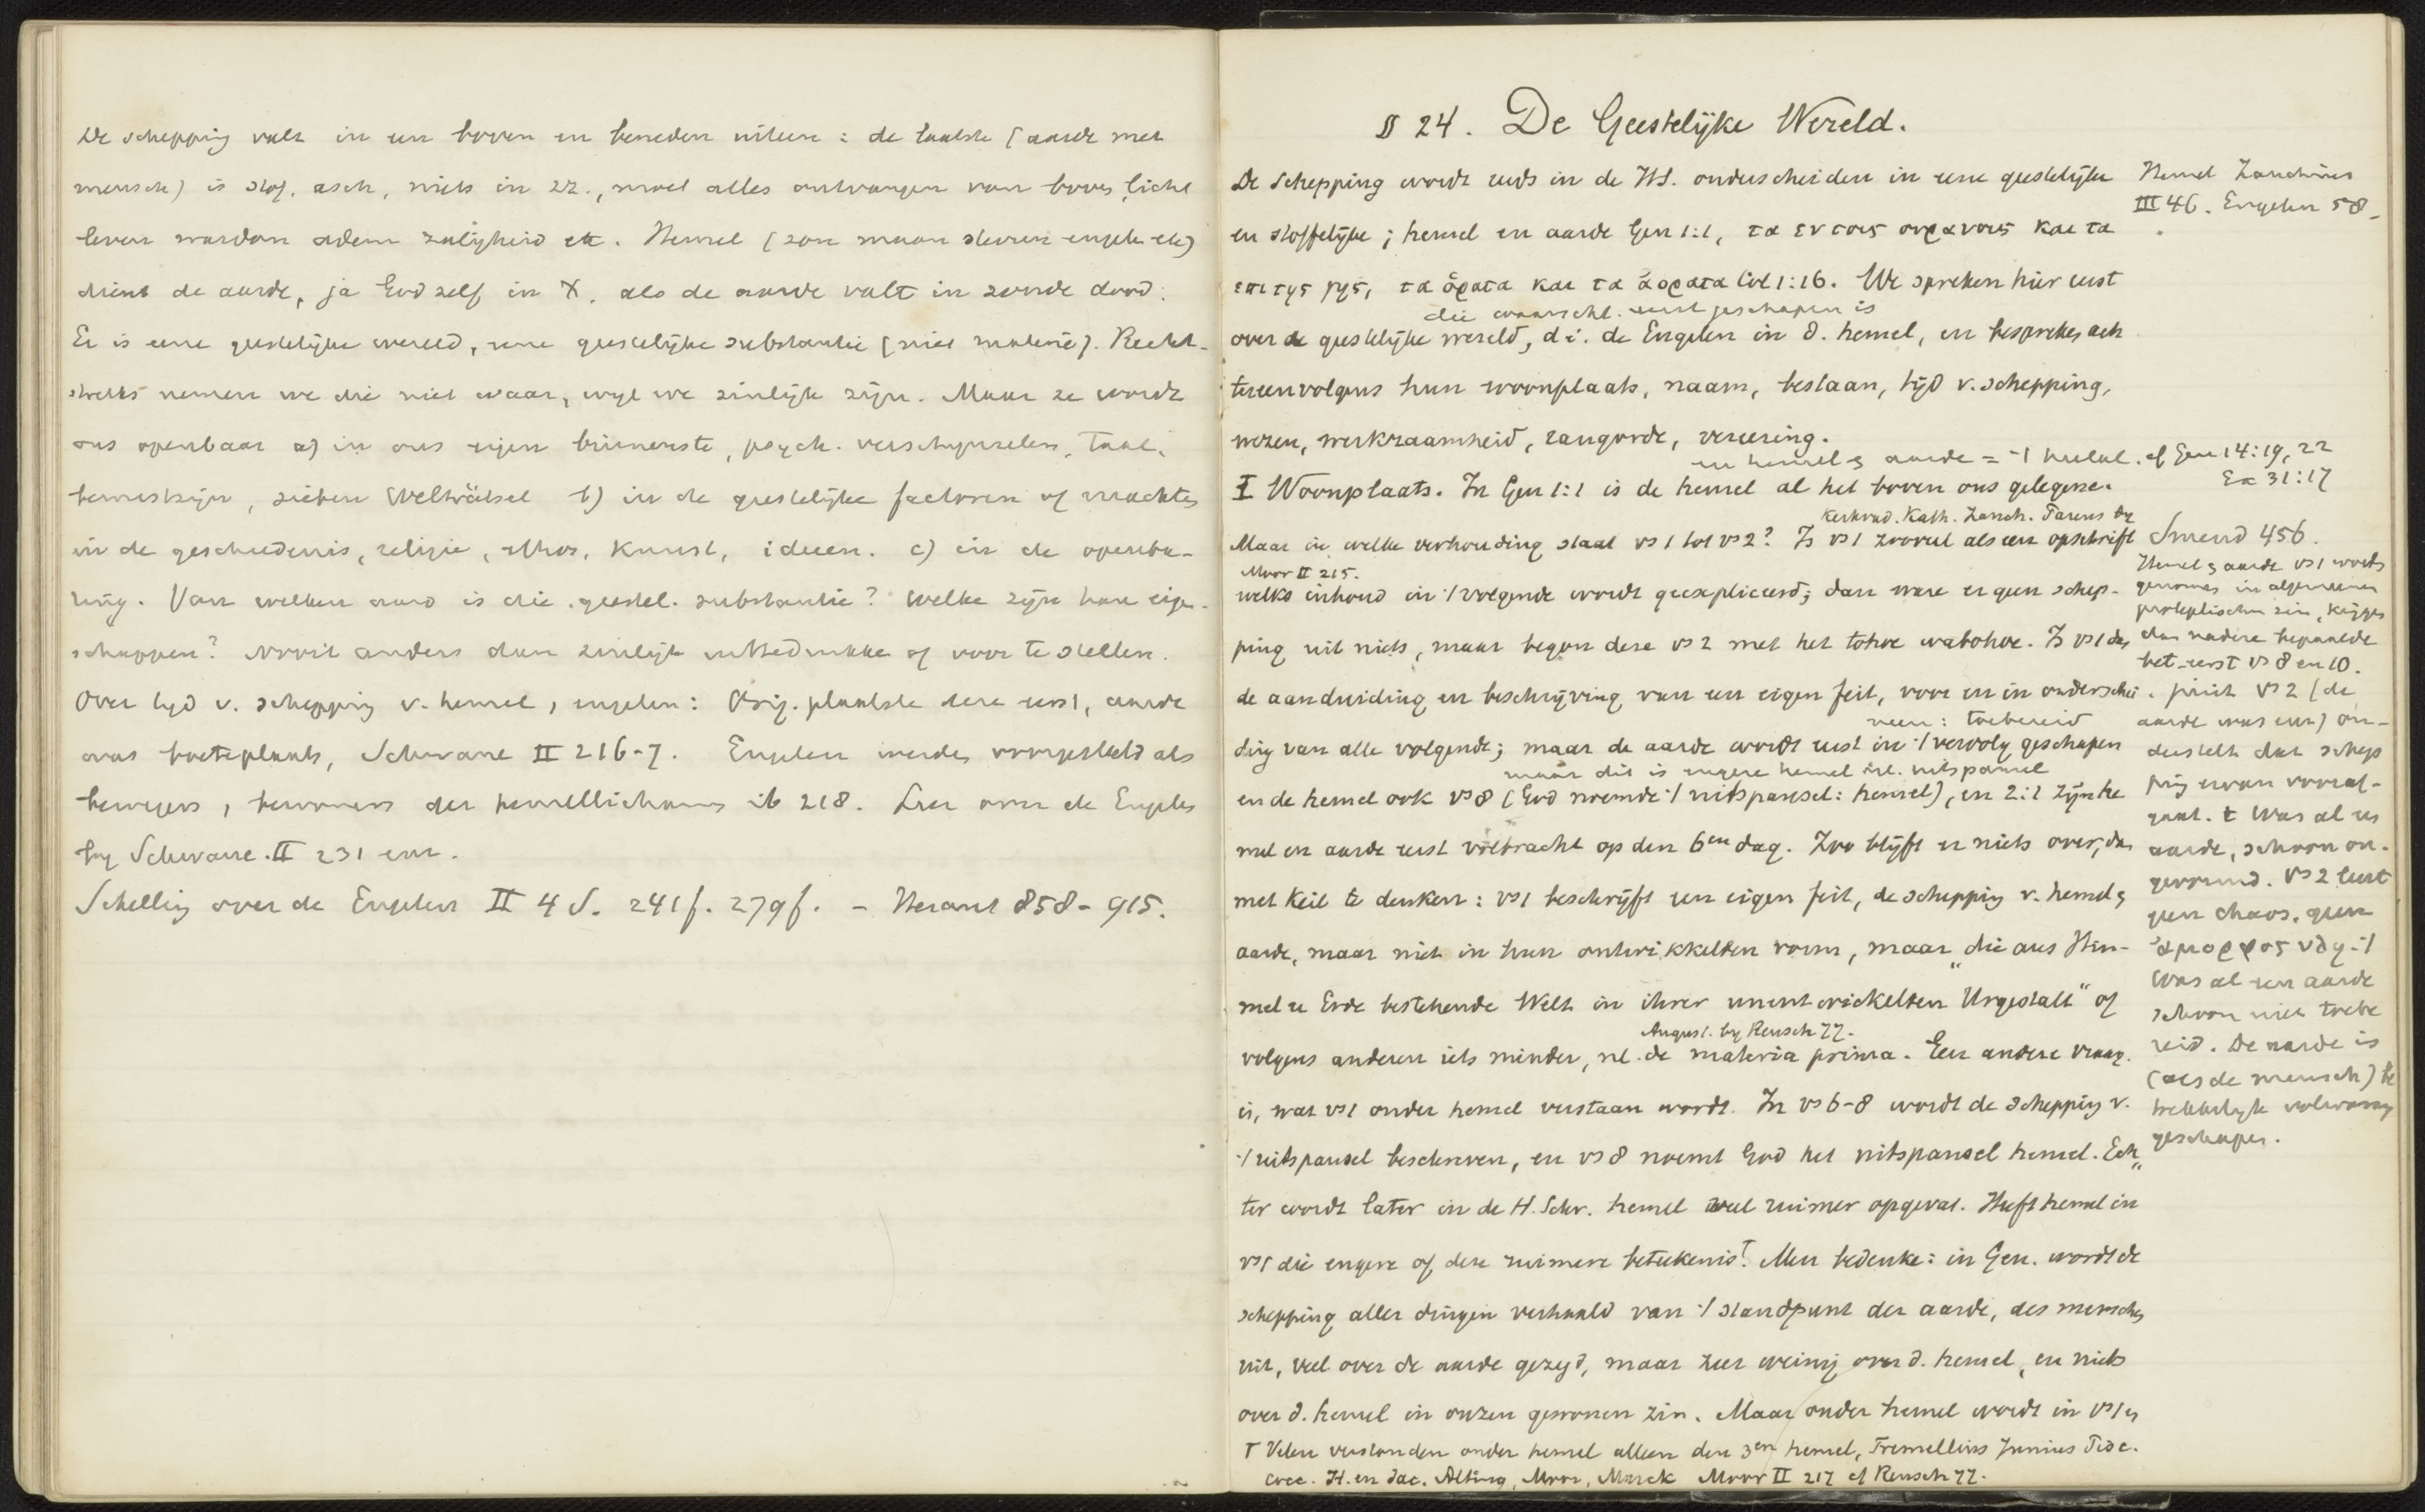 De schepping valt in een boven en beneden uiteen : de laatste (aarde met
mensch) is stof, asch, niets in zz., moet alles ontvangen van boven, licht
leven wasdom adem zaligheid etc. Hemel (zon maan sterren engelen etc)
dient de aarde, ja God zelf in X, als de aarde valt in zonde dood.
Er is eene geestelijke wereld, eene geestelijke substantie (niet materie). Recht-
streeks nemen we die niet waar, wijl we zinlijk zijn. Maar ze wordt
ons openbaar a) in ons eigen binnenste, psych. verschijnselen, taal,
bewustzijn, sieben Welträtsel b) in de geestelijke factoren of machten
in de geschiedenis, religie, ethos, kunst, ideeen. c) in de openba-
ring. Van welken aard is die geestel. substantie? Welke zijn hare eigen-
schappen? Nooit anders dan zinlijk uittedrukken of voor te stellen.
Over tijd v. schepping v. hemel, engelen: Orig. plaatste deze eerst, aarde
was boeteplaats, Schwane II 216-7. Engelen werden voorgesteld als
bewegers, bewoners der hemellichamen ib 218. Leer over de Engelen
by Schwane. II 231 enz.
Schelling over de Engelen II 4 S. 241f. 279f. - Heraut 858-915.
§ 24. De Geestelijke Wereld.
De Schepping wordt reeds in de H.S. onderscheiden in eene geestelijke
en stoffelijke ; hemel en aarde Gen 1:1, τα εν τοις ουρανοις και τα
επι της γης, τα ὁρατα και τα ἀορατα Col 1:16. We spreken hier eerst
die waarschl. eerst geschapen is
over de geestelijke wereld, d.i. de Engelen in d. hemel, en bespreken ach
tereenvolgens hun woonplaats, naam, bestaan, tijd v. schepping,
wezen, werkzaamheid, rangorde, vereering.
en hemel & aarde = ·/ heelal. cf Gen 14:19, 22
Ex 31:17
I Woonplaats. In Gen 1:1 is de hemel al het boven ons gelegene.
Kerkvad. Kath. Zanch. Pareus by
Maar in welke verhouding staat vs 1 tot vs 2? Is vs 1 zooveel als een opschrift
Moor II 215.
welks inhoud in ·/ volgende wordt geexpliceerd; dan ware er geen schep-
ping uit niets, maar begon deze vs 2 met het tohoe wabohoe. Is vs 1 dan
de aanduiding en beschrijving van een eigen feit, voor en in onderschei
neen : toebereid
ding van alle volgende; maar de aarde wordt eerst in ·/ vervolg geschapen
maar dit is engere hemel nl. uitspansel
en de hemel ook vs 8 (God noemde ·/ uitspansel: hemel), en 2:1 zijn he
mel en aarde eerst volbracht op den 6en dag. Zoo blijft er niets over, dan
met Keil te denken : vs 1 beschrijft een eigen feit, de schepping v. hemel &
aarde, maar niet in hun ontwikkelden vorm, maar „die aus Him-
mel u Erde bestehende Welt in ihrer unentwickelten Urgestalt" of
August. by Reusch 77.
volgens anderen iets minder, nl. de materia prima. Een andere vraag
is, wat vs 1 onder hemel verstaan wordt. In vs 6-8 wordt de schepping v.
·/ uitspansel beschreven, en vs 8 noemt God het uitspansel hemel. Ech„
ter wordt later in de H. Schr. hemel veel ruimer opgevat. Heeft hemel in
vs 1 die engere of deze ruimere beteekenis?† Men bedenke: in Gen. wordt de
schepping aller dingen verhaald van ·/ standpunt der aarde, des menschen
uit, veel over de aarde gezegd, maar zeer weinig over d. hemel, en niets
over d. hemel in onzen gewonen zin. Maar onder hemel wordt in vs 1 en
† Velen verstonden onder hemel alleen den 3en hemel, Tremellius Junius Pisc.
Cocc. H. en Jac. Alting, Moor, Marck Moor II 217 cf Reusch 77.
Hemel Zanchius
III 46. Engelen 58_
Smend 456.
Hemel & aarde vs 1 wordt
genomen in algemeenen
proleptischen zin, krijgen
dan nadere bepaalde
bet. eerst vs 8 en 10.
Juist vs 2 (de
aarde was enz) on-
derstelt dat schep
ping ervan vooraf-
gaat. Er was al een
aarde, schoon on-
gevormd. Vs 2 leert
geen chaos, geen
ἀμορφος υλη ·/
was al een aarde
schoon niet toebe
reid. De aarde is
(als de mensch) be
trekkelijk volwassen
geschapen.